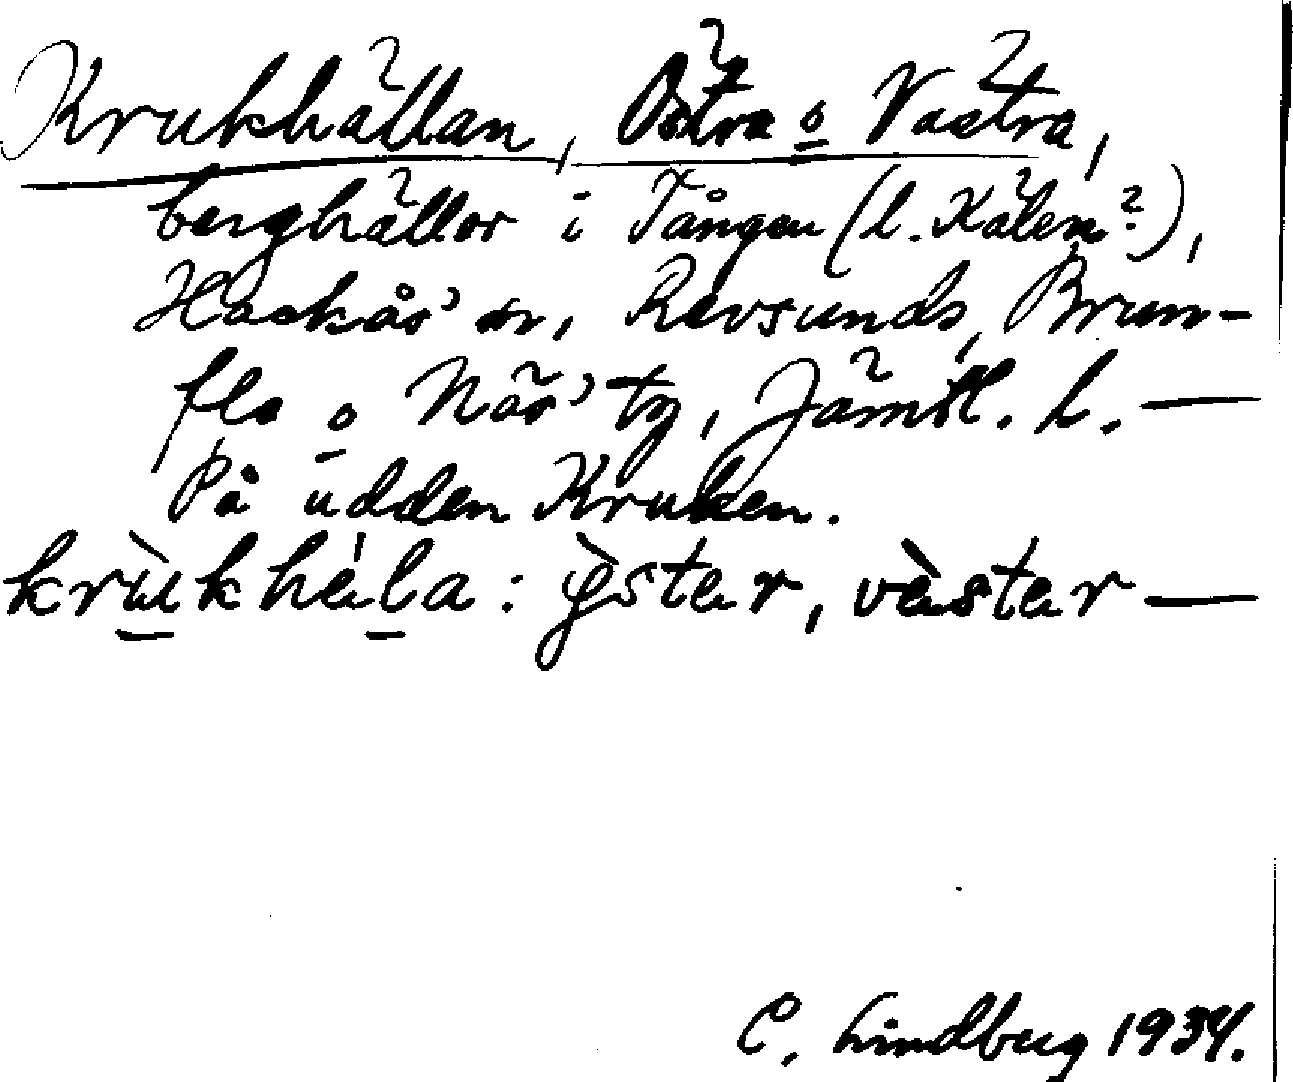 Krukhällan, Östra o Västra,
berghällor i Tången (l. Kälen?),
Hackås' sn, Revsunds, Brun-
flo o Näs' tg, Jämtl. l. —
På udden Kruken.
krùkhèla: ỳster, vèster —
C. Lindberg 1934.